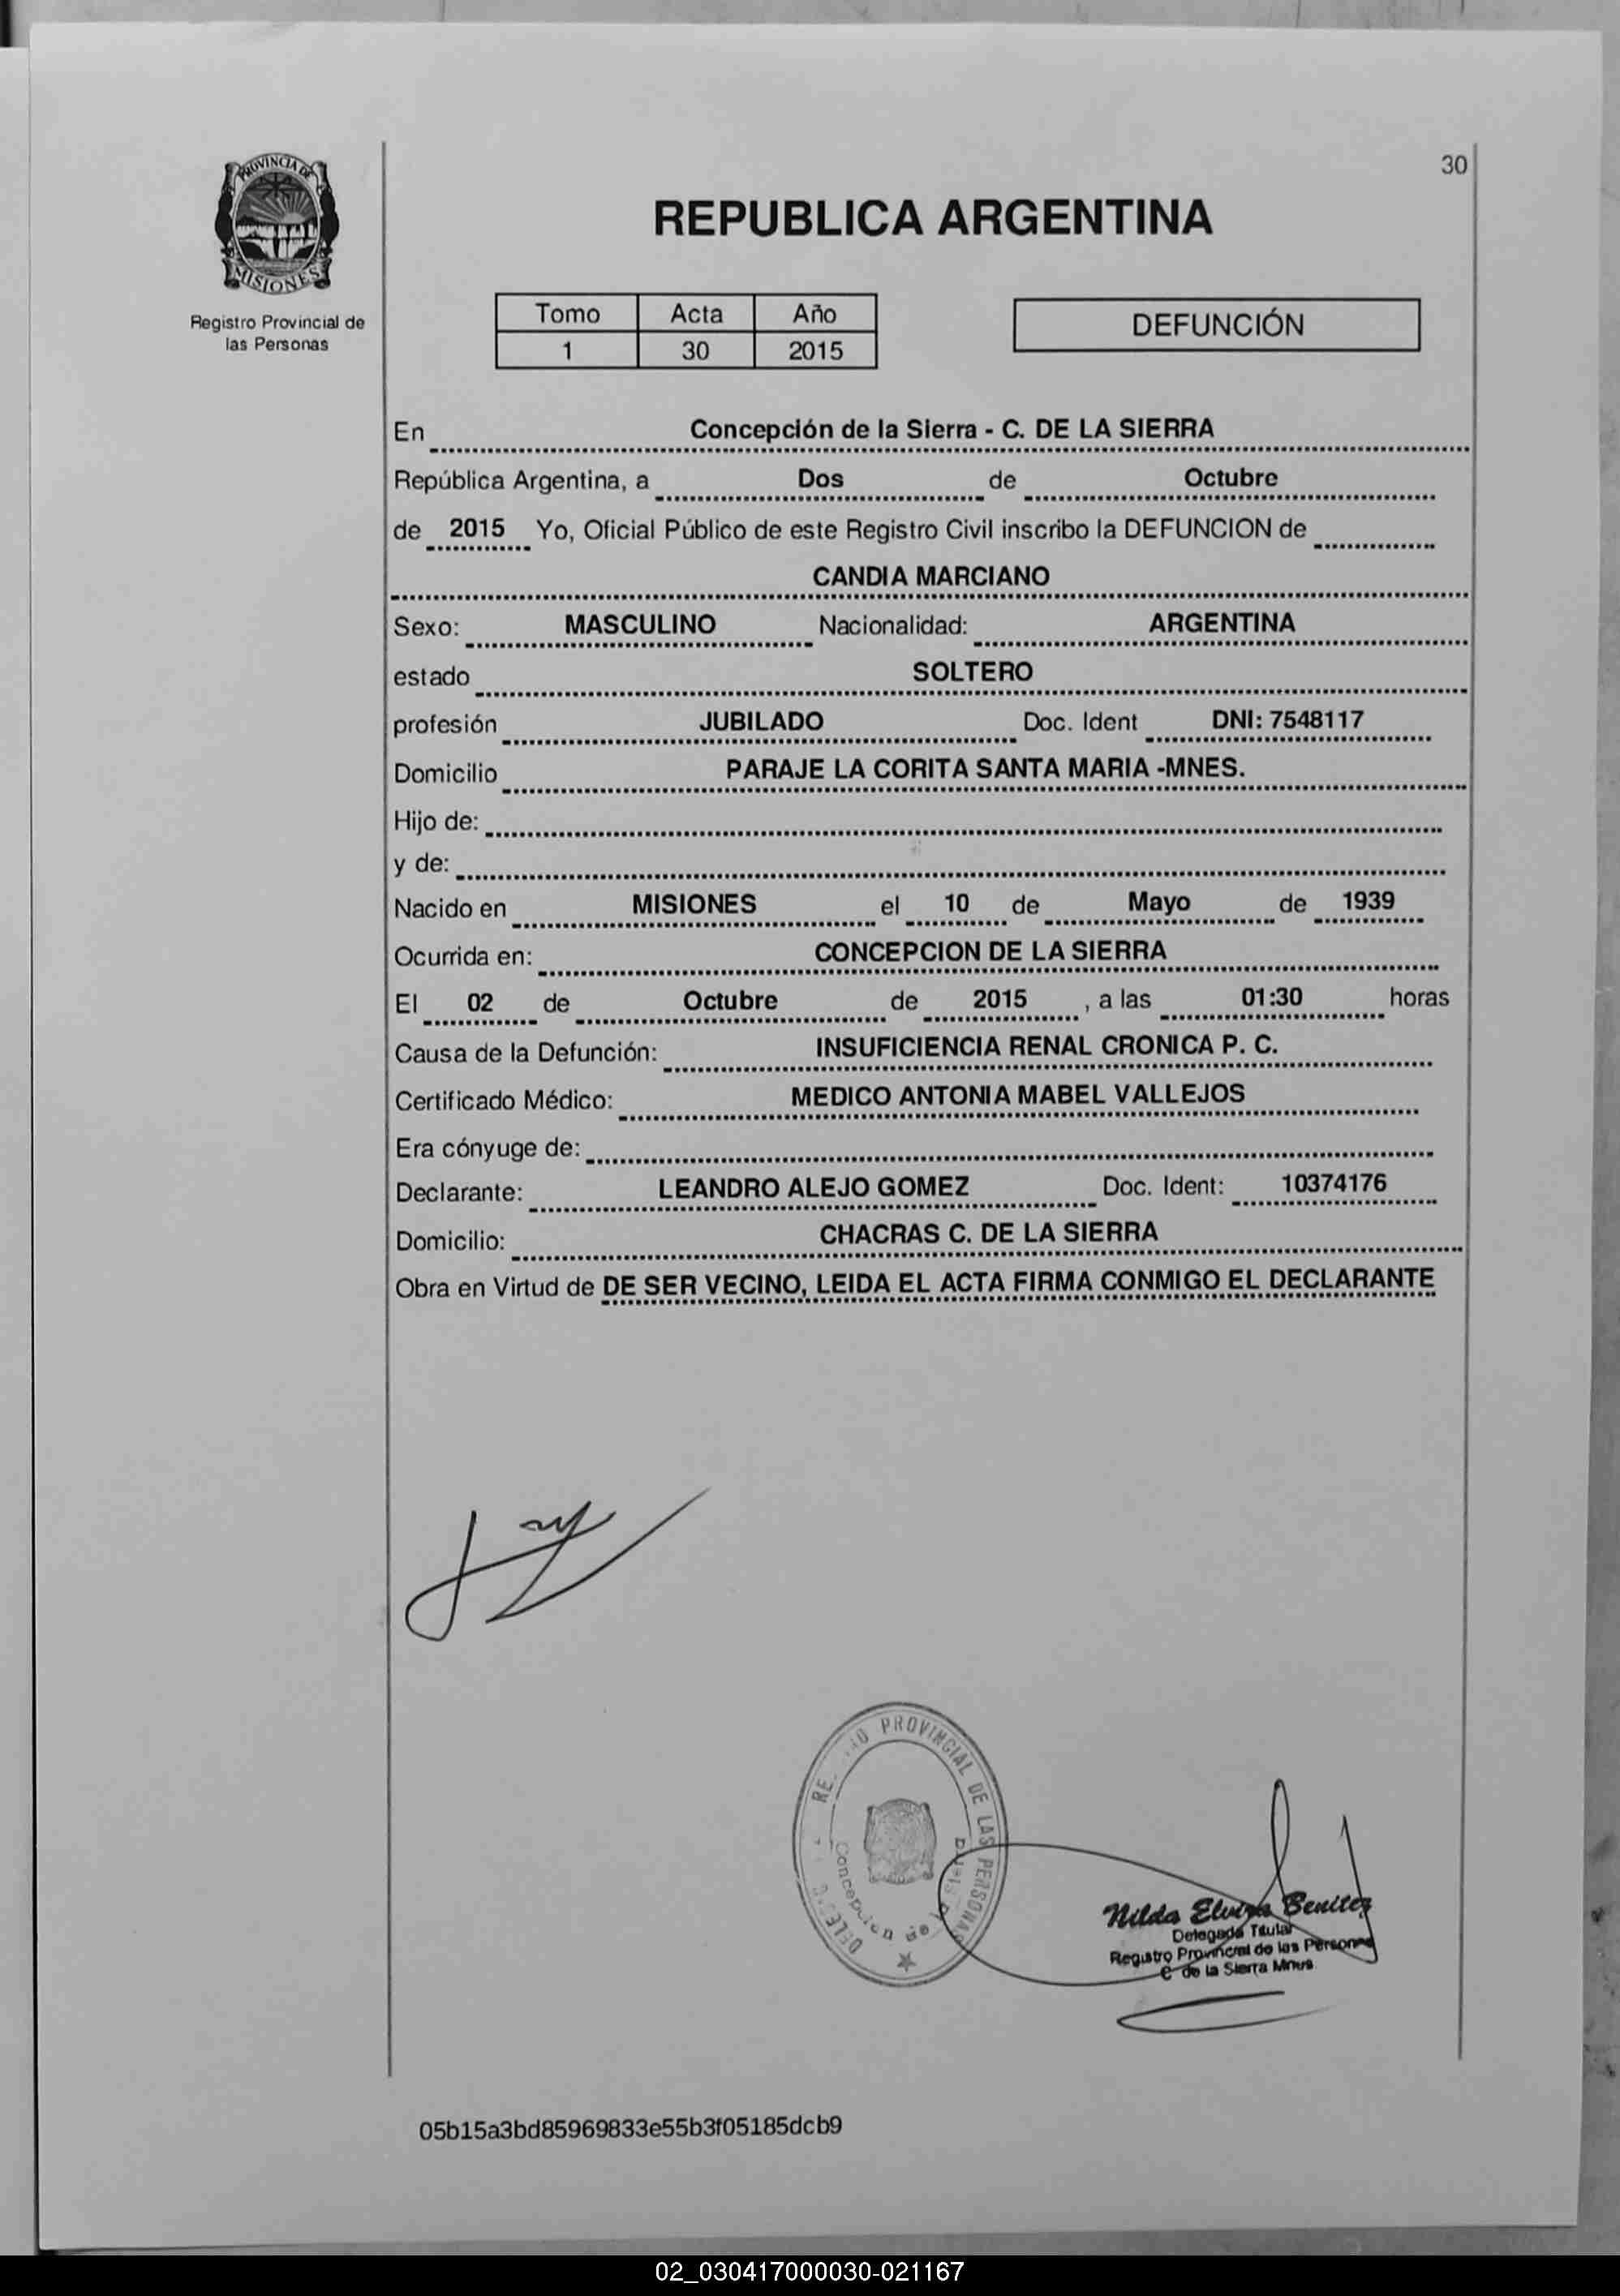 30
PROVINCIA DE
MISIONES
Registro Provincial de
las Personas
REPUBLICA ARGENTINA
Tomo Acta Año
1 30 2015
DEFUNCIÓN
En Concepción de la Sierra - C. DE LA SIERRA
República Argentina, a Dos de Octubre
de 2015 Yo, Oficial Público de este Registro Civil inscribo la DEFUNCION de
CANDIA MARCIANO
Sexo: MASCULINO Nacionalidad: ARGENTINA
estado SOLTERO
profesión JUBILADO Doc. Ident DNI: 7548117
Domicilio PARAJE LA CORITA SANTA MARIA -MNES.
Hijo de:
y de:
Nacido en MISIONES el 10 de Mayo de 1939
Ocurrida en: CONCEPCION DE LA SIERRA
El 02 de Octubre de 2015 , a las 01:30 horas
Causa de la Defunción: INSUFICIENCIA RENAL CRONICA P. C.
Certificado Médico: MEDICO ANTONIA MABEL VALLEJOS
Era cónyuge de:
Declarante: LEANDRO ALEJO GOMEZ Doc. Ident: 10374176
Domicilio: CHACRAS C. DE LA SIERRA
Obra en Virtud de DE SER VECINO, LEIDA EL ACTA FIRMA CONMIGO EL DECLARANTE
PROVINCIAL DE LAS PERSONAS
Concepcion de
Nilda Elvira Benitez
Delegada Titular
Registro Provincial de las Personas
C de la Sierra Mnes
05b15a3bd85969833e55b3f05185dcb9
02_030417000030-021167